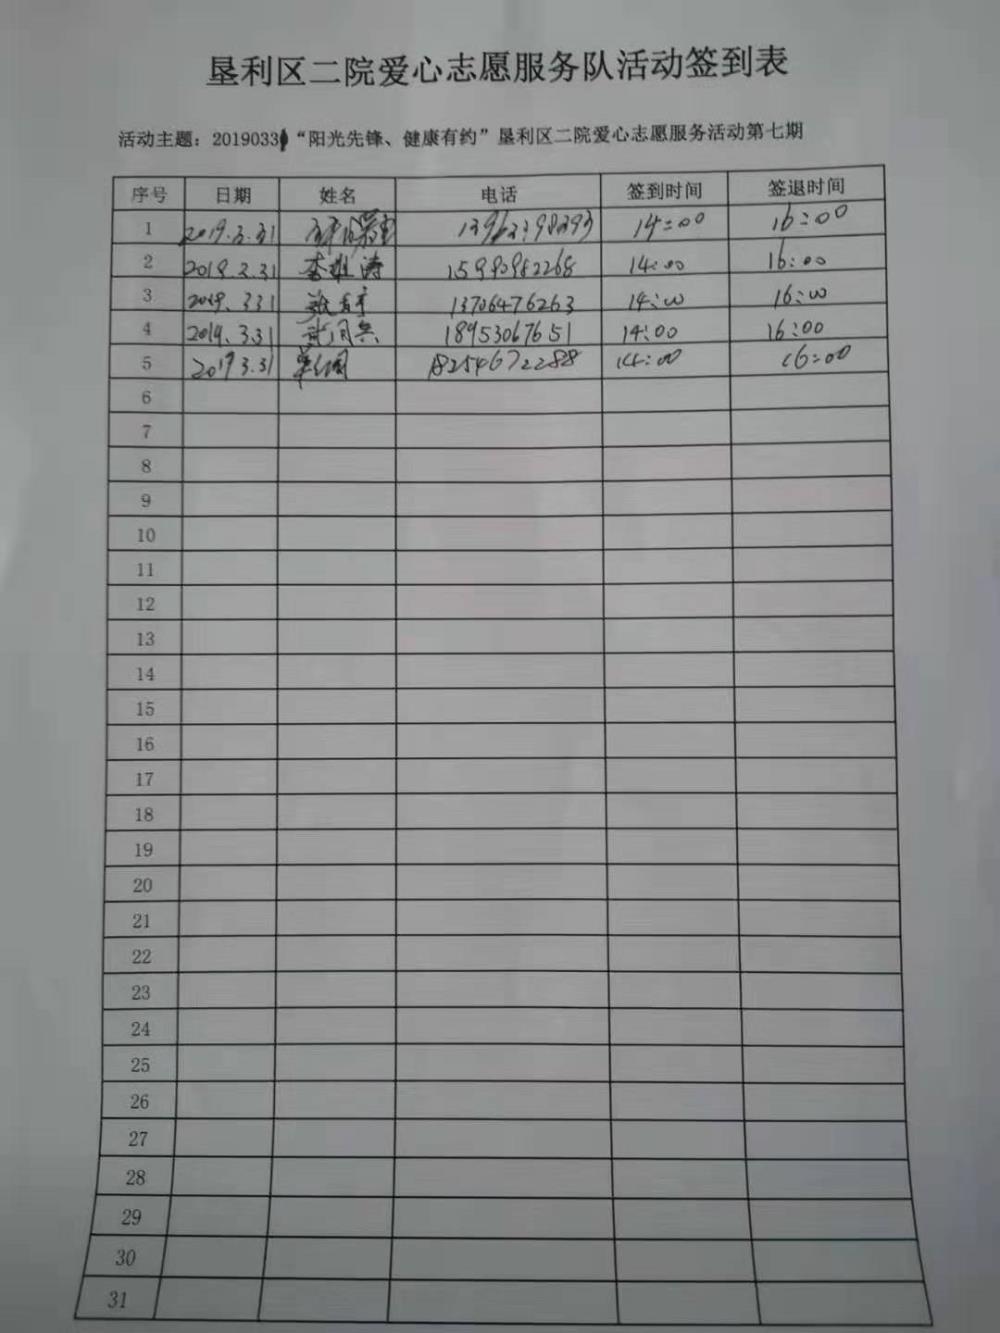 垦利区二院爱心志愿服务队活动签到表
活动主题：20190331 “阳光先锋、健康有约”垦利区二院爱心志愿服务活动第七期
序号 日期 姓名 电话 签到时间 签退时间
1 2019.3.31 14:00 16:00
2 2019.3.31 14:00 16:00
3 2019.331 13706476263 14:00 16:00
4 2019.3.31 18953067651 14:00 16:00
5 2019 3.31 18254672288 14:00 16:00
6
7
8
9
10
11
12
13
14
15
16
17
18
19
20
21
22
23
24
25
26
27
28
29
30
31